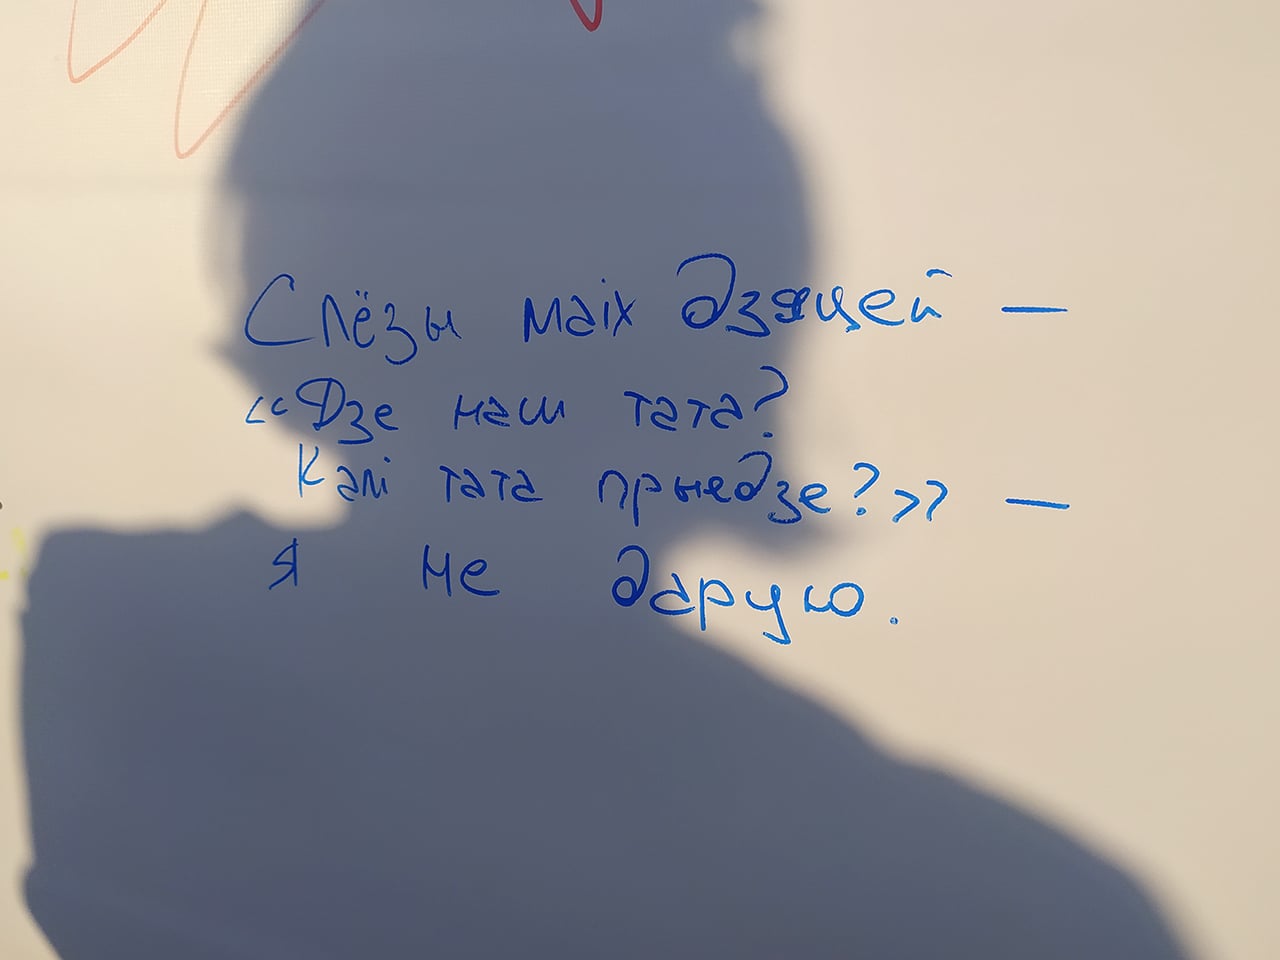 Слёзы маіх дзяцей —
“Дзе наш тата?
Калі тата прыедзе?》 —
я не дарую.